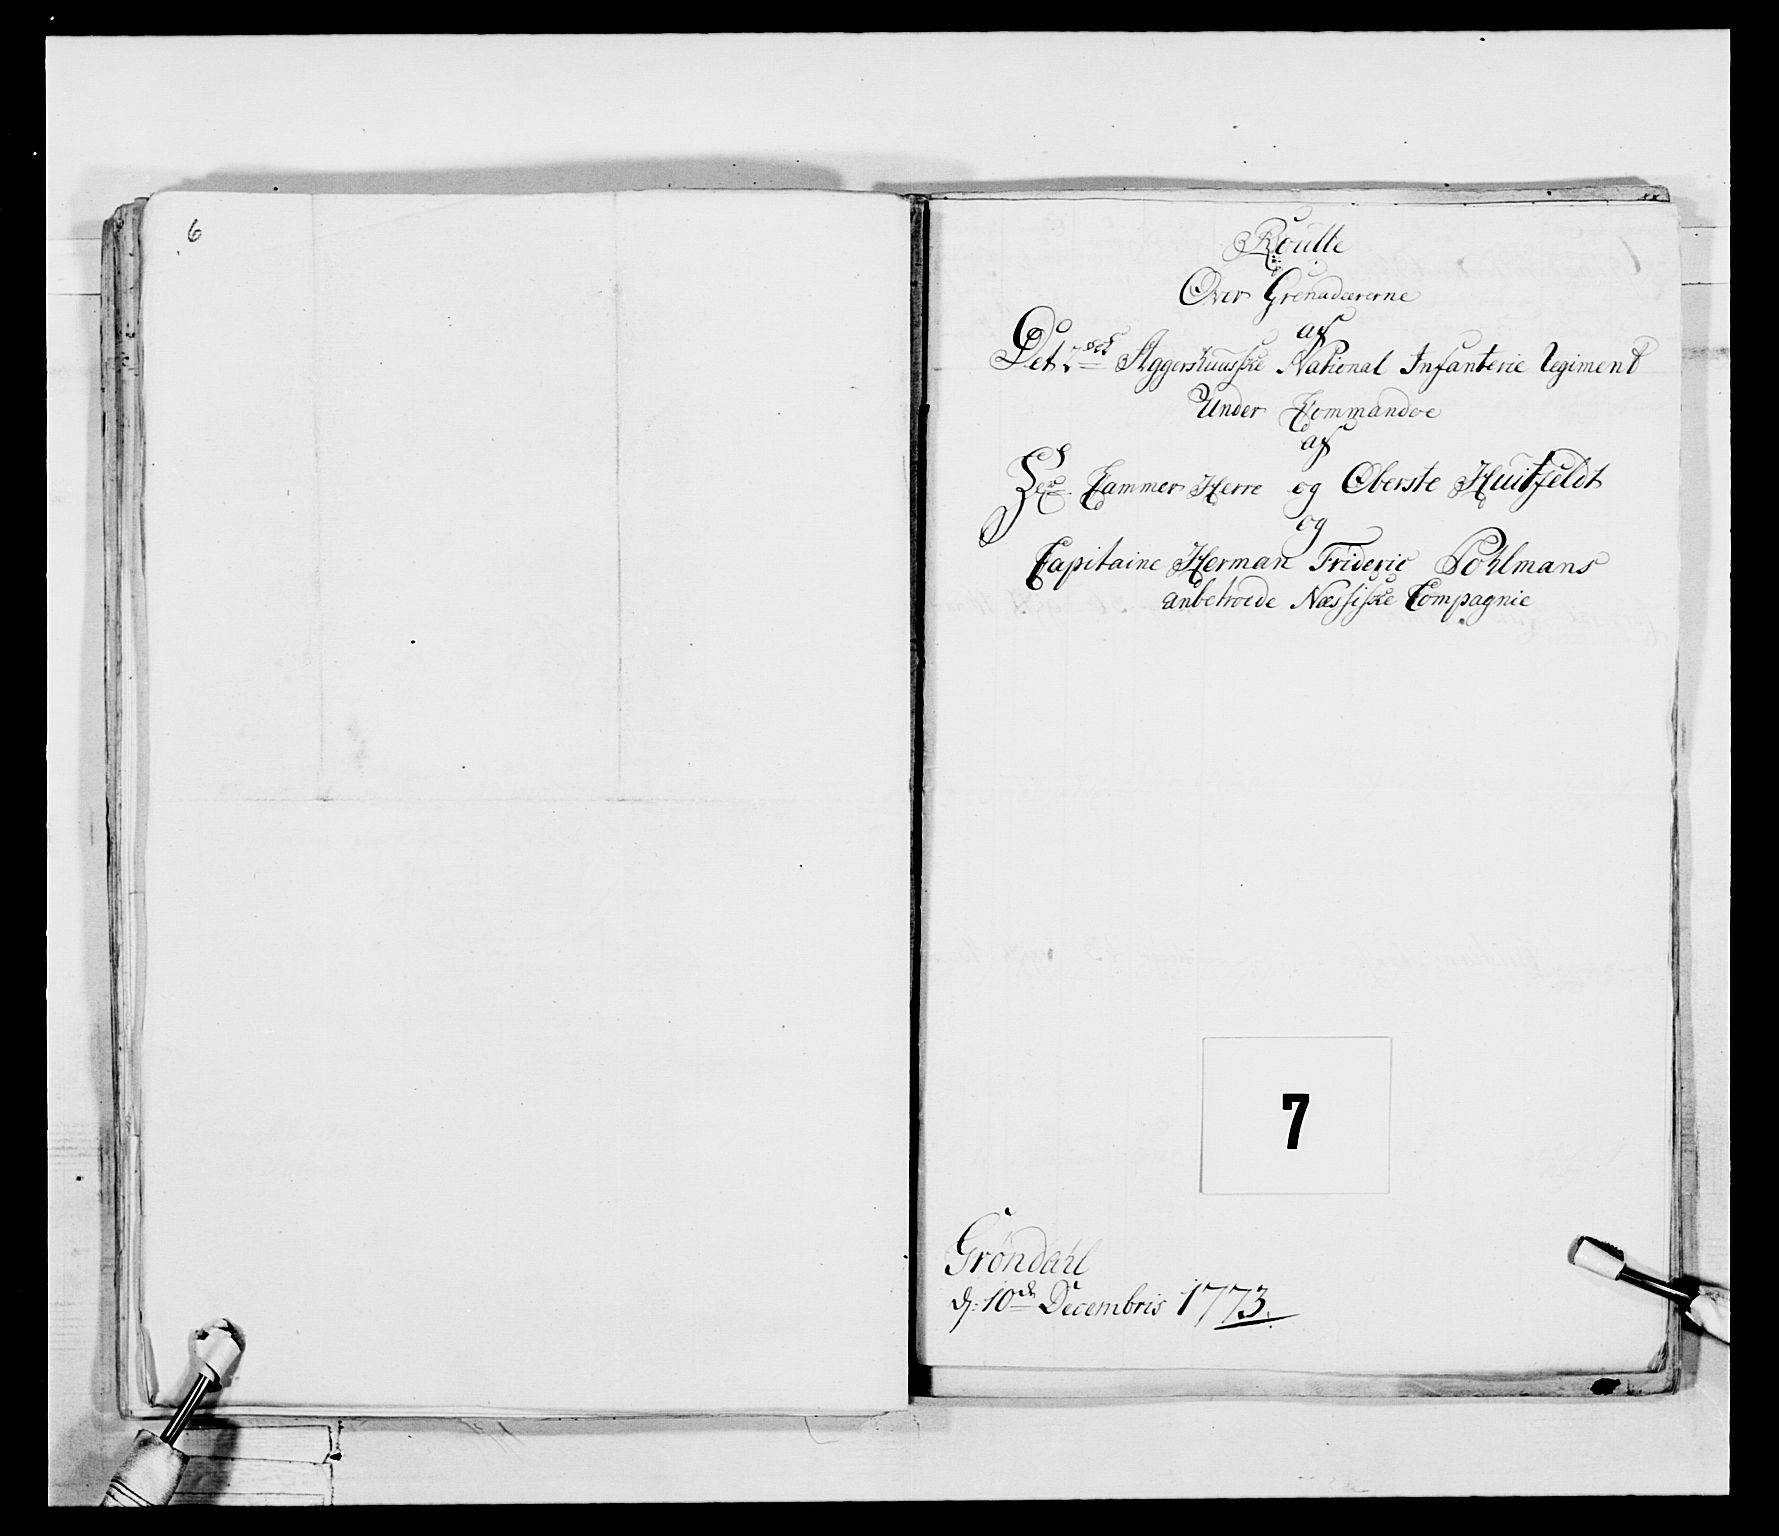 6
Roulle
Over Grenadeererne
af
Det 2det Aggershuusske National Infanterie Regiment
Under Commandoe
af
Her Cammer Herre og Oberste Huitfeldt
og
Capitaine Herman Frideric Pohlmans
anbetroede Næssiske Compagnie
7
Grøndahl
d: 10de Decembris 1773.